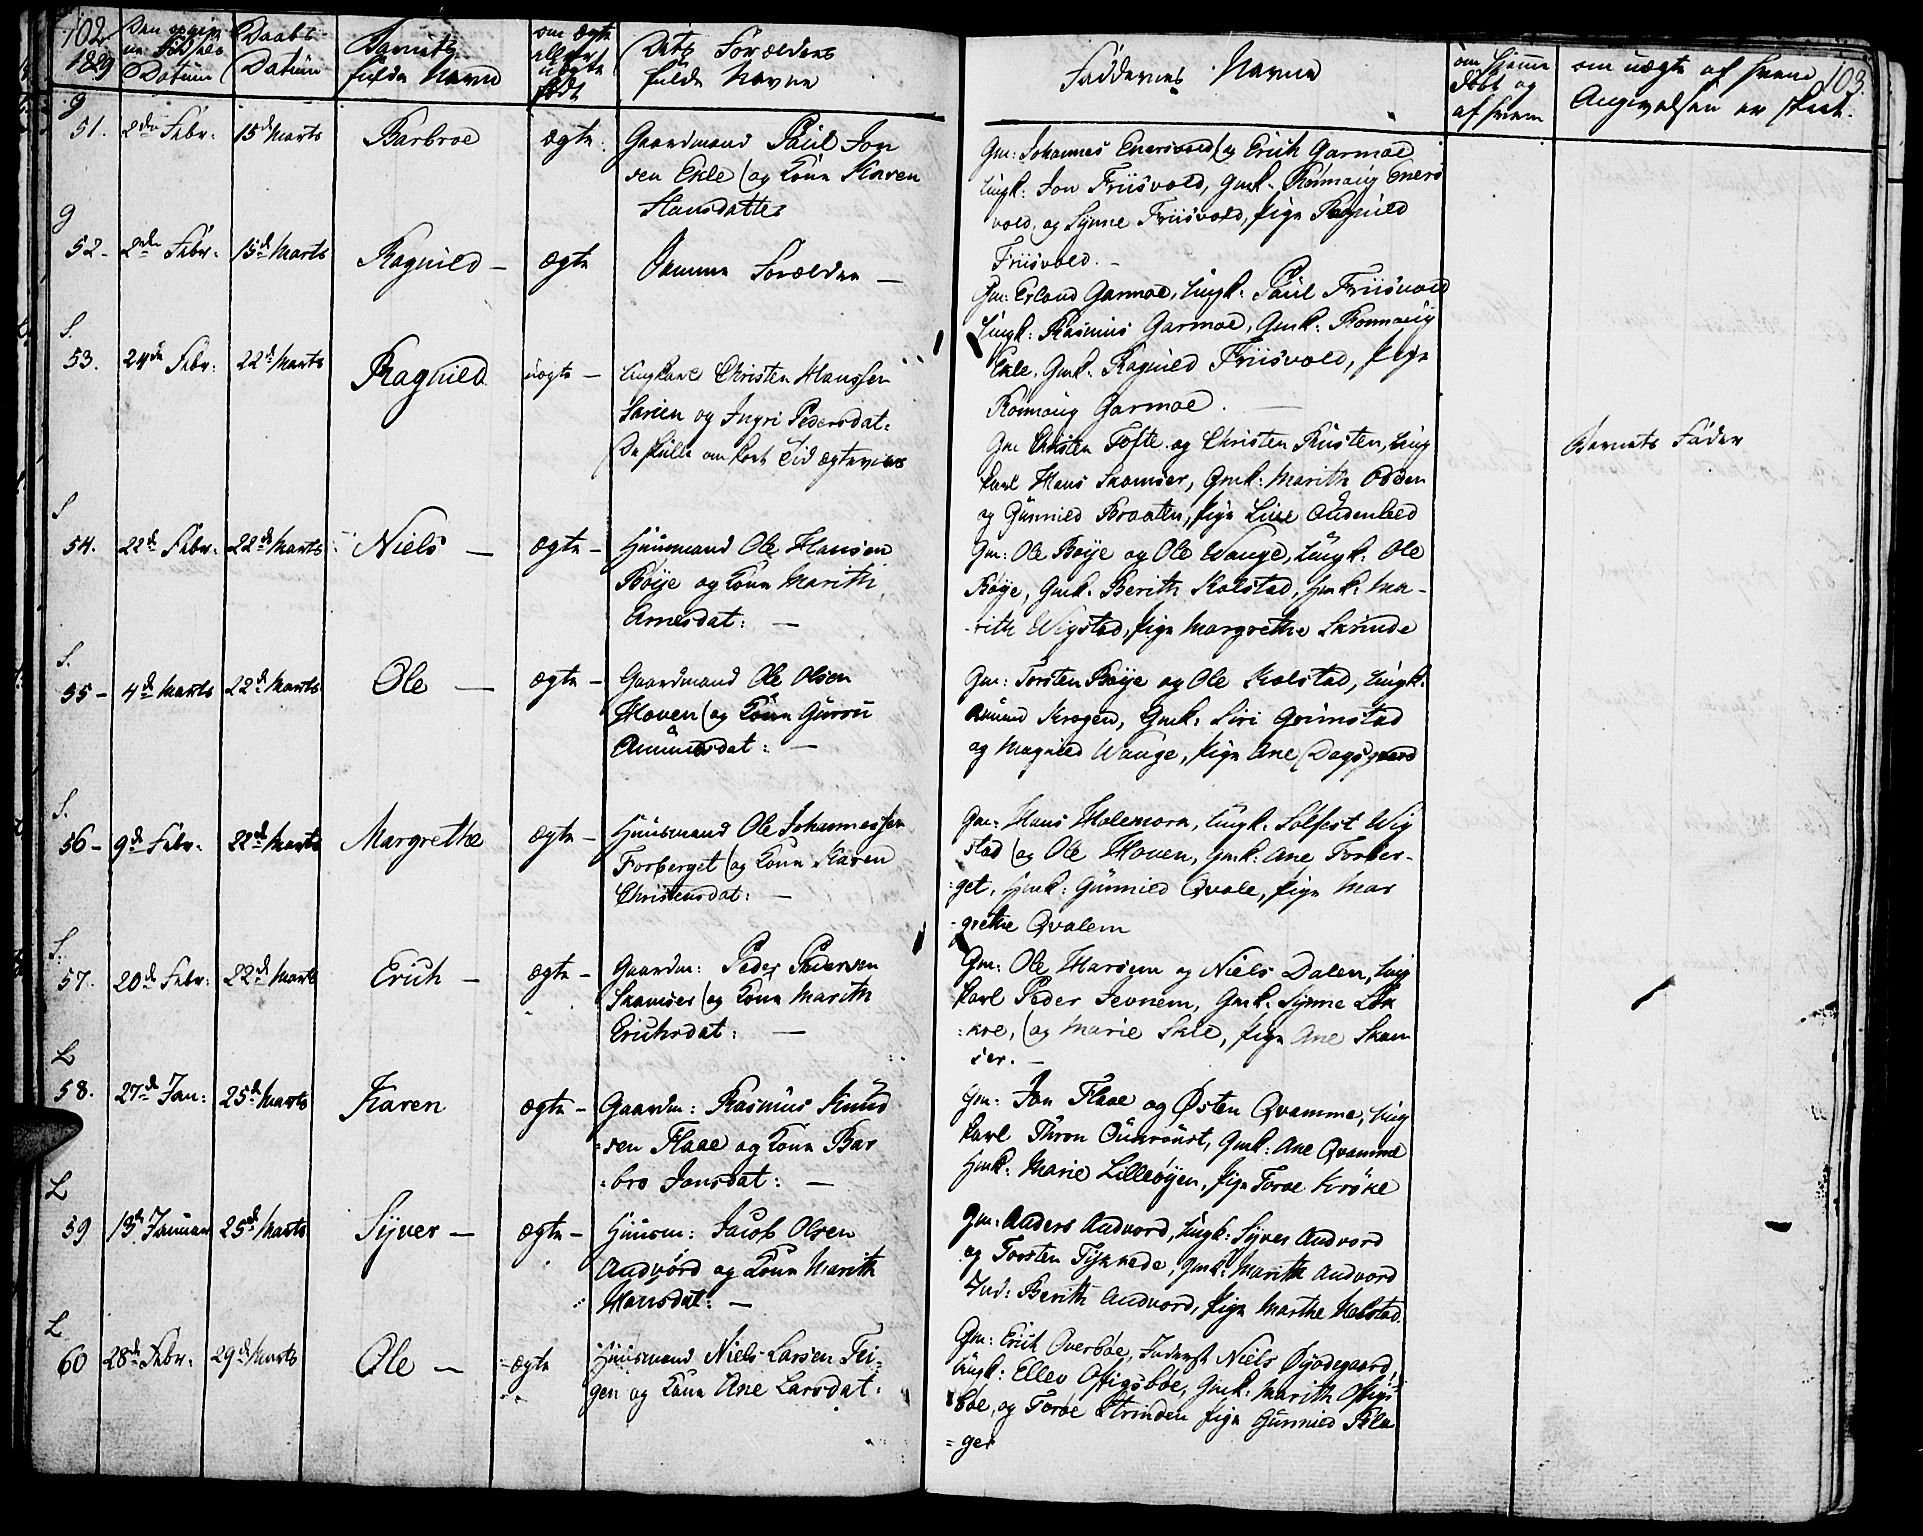 102
1829
Den opgiv
ne Fødsels
Datum
Daabs
Datum
Barnets
fulde Navn
om ægte
eller
uægte
født
Dets Forældres
fulde Navne
Faddernes Navne
om hjemme
døbt og
af hvem
om uægte af hvem
Angivelsen er skeet.
103.
g
51. 2den Febr: 15de Marts Barbroe ægte: Gaardmand Paul Jon
sen Ekle og Kone Karen
Hansdatter
Gm: Johannes Enersvold og Erich Garmoe
Ungk: Jon Friisvold, Gmk. Rønnaug Eners
vold, og Synne Friisvold, pige Ragnild
Friisvold. -
g
52 - 2den Febr. 15de Marts Ragnild - ægte Samme Forældre -
Gm: Erland Garmoe, Ungk: Paul Friisvold
Ungk: Rasmus Garmoe, Gmk: Rønnaug
Ekle, Gmk. Ragnild Friisvold, pige
Rønnaug Garmoe. -
S.
53. 24de Febr: 22de Marts Ragnild uægte - Ungkarl Christen Hanssen
og Ingri Pedersdat:
De skulle om kort Tid ægtevies
Gm Christen Tofte og Christen Rusten, Ung
karl Hans Skamser, Gmk: Marith Odden
og Gunnild Braaten, pige Live Oudenlied
Barnets Fader
S
54. 22de Febr. 22de Marts Niels - ægte - Huusmand Ole Hansen
Bøije og Kone Marith
Arnesdat: -
Gm: Ole Bøije og Ole Wange, Ungk: Ole
Bøije, Gmk. Berith Kolstad, Hmk: Ma-
-rith Wigstad, pige Margrethe Skrinde
S.
55 - 4de Marts 22de Marts Ole - ægte - Gaardmand Ole Olsen
Hoven og Kone Guroe
Amundsdat: -
Gm: Torsten Bøije og Ole Kolstad, Ungk.
Amund Krogen, Gmk: Siri Grimstad
og Magnild Wange, pige Ane Dagsgaard
S.
56 - 9de Febr. 22de Marts Margrethe ægte - Huusmand Ole Johannessen
Forberget og Kone Karen
Christensdat: -
Gm: Hans Holemoen, Ungk: Solfest Wig
stad og Ole Hoven, Gmk: Ane Forber-
-get, Hmk: Gunnild Qvale, pige Mar
-grethe Qvalem
S.
57. 20de Febr: 22de Marts Erich - ægte - Gaardm: Peder Pedersen
Skamser og Kone Marith
Erichsdat: -
Gm: Ole Harsem og Niels Dalen, Ung
karl Peder Jevnem, Gmk: Synne Løk
-kre, og Marie Skle, pige Ane Skam
ser. -
L
58. 27de Jan: 25de Marts Karen ægte - Gaardm: Rasmus Knud
-sen Flaae og Kone Bar
-bro Jonsdat: -
Gm: Jon Flaae og Østen Qvamme, Ung
karl Thron, Gmk: Ane Qvamme
Hmk: Marie Lilleøyen, pige Toroe Krøke
L
59 13de Januar 25de Marts Syver - ægte - Huusm: Jacob Olsen
Andvord og Kone Marith
Hansdat: -
Gm: Anders Andvord, Ungk: Syver Andvord
og Torsten, Gmk: Marith Andvord
Ind: Berith Andvord, pige Marthe Helstad.
L
60 28de Febr: 29de Marts Ole - ægte Huusmand Niels Larsen Tei-
gen og Kone Ane Larsdat:
Gm: Erich Overbøe, Inderst Niels Øyodegaard,
Ungk: Ellev Ofigsbøe, Gmk: Marith Ofigs-
bøe, og Toroe Strinden pige Gunnild Kla
-ger